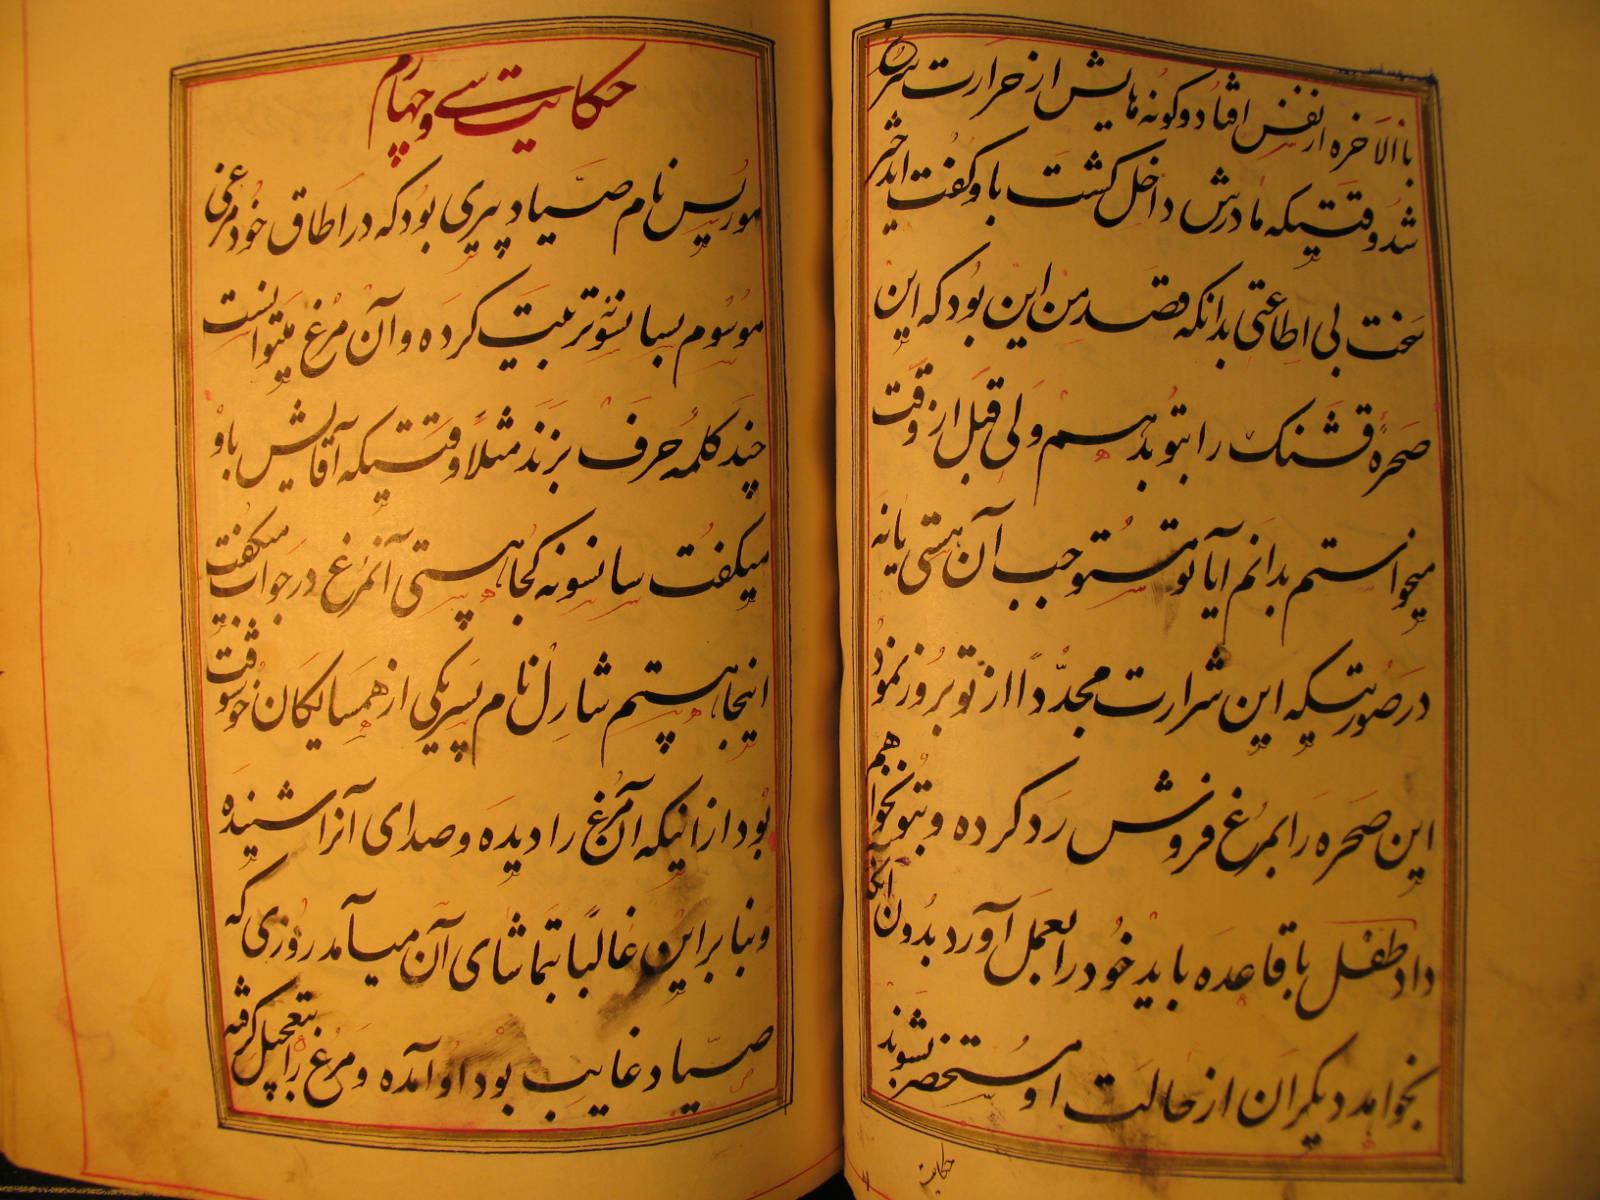 باالاخره از نفس افتاد و کونه هایش از حرارت سرخ
شد وقتیکه مادرش داخل کشت باو کفت ایدختر
سخت بی اطاعتی بدانکه قصد من این بود که این
صحره قشنک را بتو بدهم ولی قبل از وقت
میخواستم بدانم آیا تو مستوجب آن هستی یا نه
در صورتیکه این شرارت مجدّداً از تو بروز نمود
این صحره را بمرغ فروش رد کرده و بتو نخواهم
داد طفل با قاعده باید خود را بعمل آورد بدون آنکه
بخواهد دیکران از حالت او مستحضر بشوند
حکایت
حکایت سی و چهارم
موریس نام صیّاد پیری بود که در اطاق خود مرغی
موسوم بسانسونه تربیت کرده و آن مرغ میتوانست
چند کلمه حرف بزند مثلاً وقتیکه آقایش باو
میکفت سانسونه کجا هستی آنمرغ در جواب میکفت
اینجا هستم شارل نام پسر یکی از همسایکان خوشوقت
بود از انیکه آن مرغ را دیده و صدای آنرا شنیده
و بنابراین غالباً بتماشای آن میامد روزی که
صیّاد غایب بود او آمده و مرغ را بتعجیل کرفته